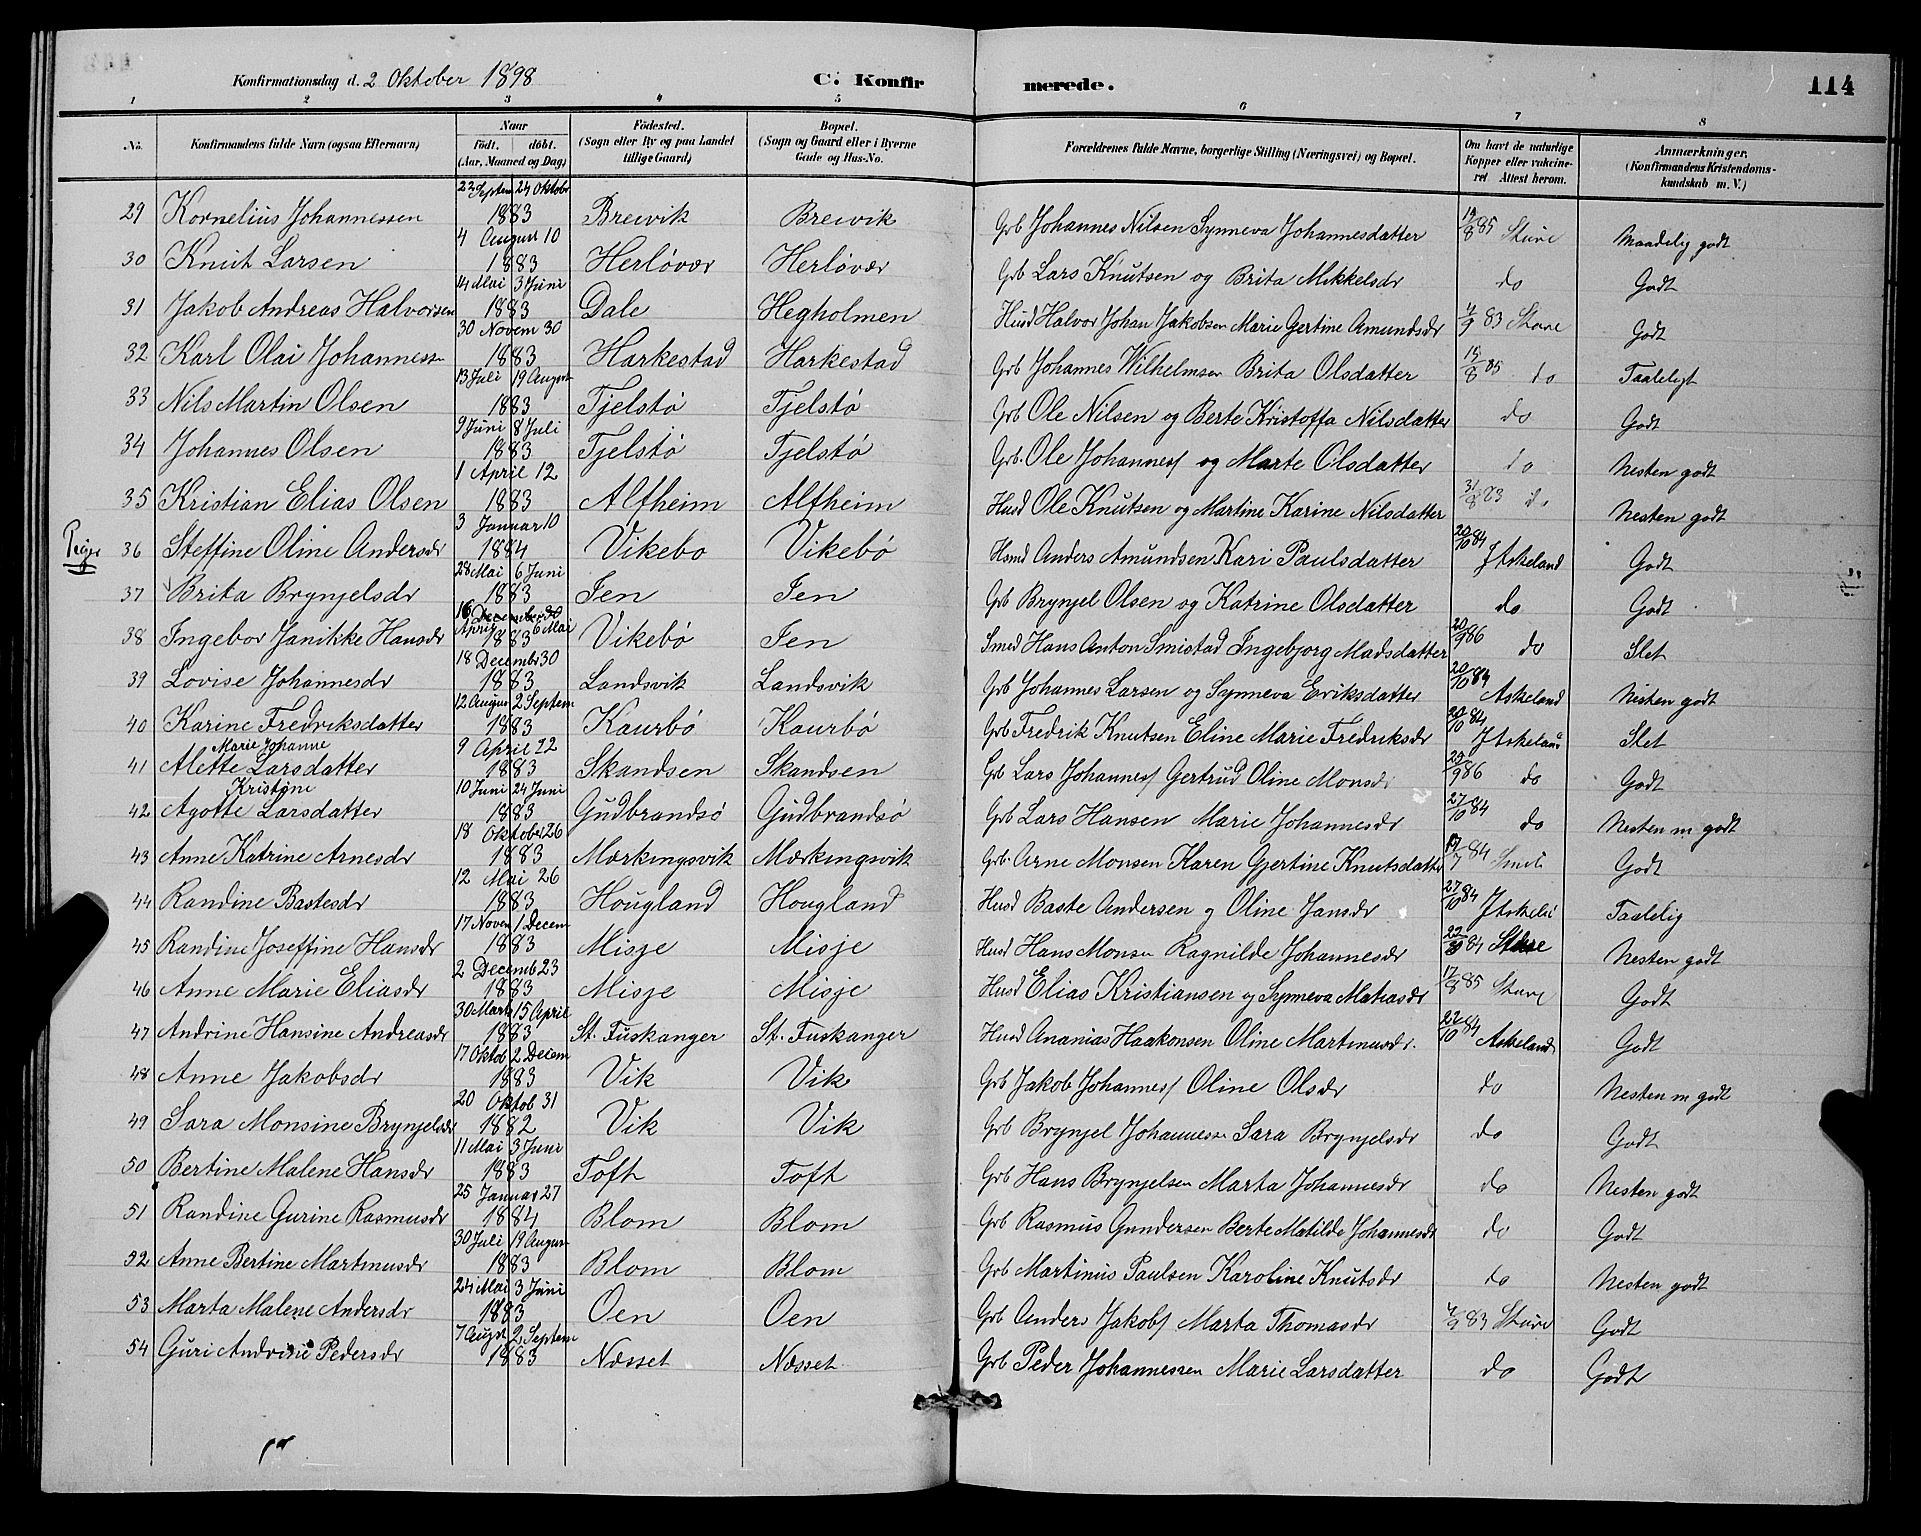 Konfirmationsdag d. 2 Oktober 1898 C. Konfir merede. 114
1 2 3 4 5 6 7 8
No. Konfirmandens fulde Navn (ogsaa Efternavn) Naar födt. döbt. (Aar, Maaned og Dag) Födested. (Sogn eller By og paa Landet tillige Gaard) Bopæl. (Sogn og Gaard eller i Byerne Gade og Hus-No. Forældrenes fulde Navne, borgerlige Stilling (Næringsvei) og Bopæl. Om havt de naturlige Kopper eller vakcineret Attest herom. Anmærkninger. (Konfirmandens Kristendomskundskab m. V.)
29 Kornelius Johannessen 22 Septem 24 Oktobr 1883 Breivik Breivik Grb Johannes Nilsen Synneva Johannesdatter 19/8 85 Sture Maadelig godt
30 Knut Larsen 4 August 10 1883 Herlövær Herlövær Grb Lars Knutsen og Brita Mikkelsdr do Godt
31 Jakob Andreas Halvorsen 14 Mai 3 Juni 1883 Dale Hegholmen Husd Halvor Johan Jakobsen Marie Gertine Amundsdr 4/9 83 Sture Godt
32 Karl Olai Johannessn 30 Novem 30 1883 Harkestad Harkestad Grb Johannes Wilhelmsen Brita Olsdatter 19/8 85 do Taaleligt
33 Nils Martin Olsen 13 Juli 19 August 1883 Fjelstö Fjelstö Grb Ole Nilsen og Berte Kristoffa Nilsdatter do Godt
34 Johannes Olsen 9 Juni 8 Juli 1883 Fjelstö Fjelstö Grb. Ole Johannes/ og Marte Olsdatter do Nesten godt
35 Kristian Elias Olsen 1 April 12 1883 Alfheim Alfheim Husd Ole Knutsen og Martine Karine Nilsdatter 31/8 83 do Nesten godt
Piger
36 Steffine Oline Andersdr 3 Januar 10 1884 Vikebo Vikebö Hsmd Anders Amundsen Kari Paulsdatter 20/10 84 J Askeland Godt
37 Brita Brynjelsdr 28 Mai 6 Juni 1883 Ien Ien Grb Brynjel Olsen og Katrine Olsdatter do Godt
38 Ingebor Janikke Hansdr 16 December 30 April 6 Mai 1883 Vikebö Ien Smed Hans Anton Smistad Ingebjorg Madsdatter 20/9 86 do Slet
39 Lovise Johannesdr 18 Decembr 30 1883 Landsvik Landsvik Grb Johannes Larsen og Synneva Eriksdatter 20/10 84 Askeland Nesten godt
40 Karine Fredriksdatter 12 Augus 2 Septem 1883 Kaurbö Kaurbö Grb Fredrik Knutsen Eline Marie Fredriksdr 20/10 84 J Askelan Slet
41 Alette Marie Johanne Larsdatter 9 April 22 1883 Skandsen Skandsen Grb Lars Johannes/ Gertrud Oline Monsdr 20/9 86 do Godt
42 Agotte Kristine Larsdatter 10 Juni 24 Juni 1883 Gudbrandsö Gudbrandsö Grb Lars Hansen Marie Johannesdr 27/10 84 do Nesten m godt
43 Anne Katrine Arnesdr 18 Oktober 26 1883 Mærkingsvik Mærkingsvik Grb. Arne Monsen Karen Gjertine Knutsdatter 19/7 84 Godt
44 Randine Bastesdr 12 Mai 26 1883 Hougland Hougland Husd Baste Andersen og Oline Jansdr 27/10 84 J Askel Taalelig
45 Randine Joseffine Hansdr 17 Novem 1 Decem 1883 Misje Misje Husd Hans Monsen Ragnilde Johannesdr 22/8 84 Sture Nesten godt
46 Anne Marie Eliasdr 2 Decemb 23 1883 Misje Misje Husd Elias Kristiansen og Synneva Matiasdr 17/8 85 Sture Godt
47 Andrine Hansine Andreasdr 30 Marts 15 April 1883 St. Fuskanger St. Fuskanger Husd Ananias Haakonsen Oline Martinusdr. 22/10 84 Askeland Godt
48 Anne Jakobsdr 17 Oktob 2 Decem 1883 Vik Vik Grb Jakob Johannes/ Oline Olsdr do Nesten m godt
49 Sara Monsine Brynjelsdr 20 Oktob 31 1882 Vik Vik Grb Brynjel Johannessn Sara Brynjelsdr do Godt
50 Bertine Malene Hansdr 11 Mai 3 Juni 1883 Toft Toft Grb Hans Brynjelsen Marta Johannesdr do Nesten godt
51 Randine Gurine Rasmusdr 25 Januar 27 1884 Blom Blom Grb Rasmus Gundersen Berte Matilde Johannesdr do Godt
52 Anne Bertine Martinusdr 30 Juli 19 Augus 1883 Blom Blom Grb Martinus Paulsen Karoline Knutsdr do Nesten godt
53 Marta Malene Andersdr 24 Mai 3 Juni 1883 Oen Oen Grb Anders Jakobs/ Marta Thomasdr 4/9 83 Sture Godt
54 Guri Andrine Pedersdr 7 August 2 Septem 1883 Næsset Næsset Grb Peder Johannessen Marie Larsdatter do Godt